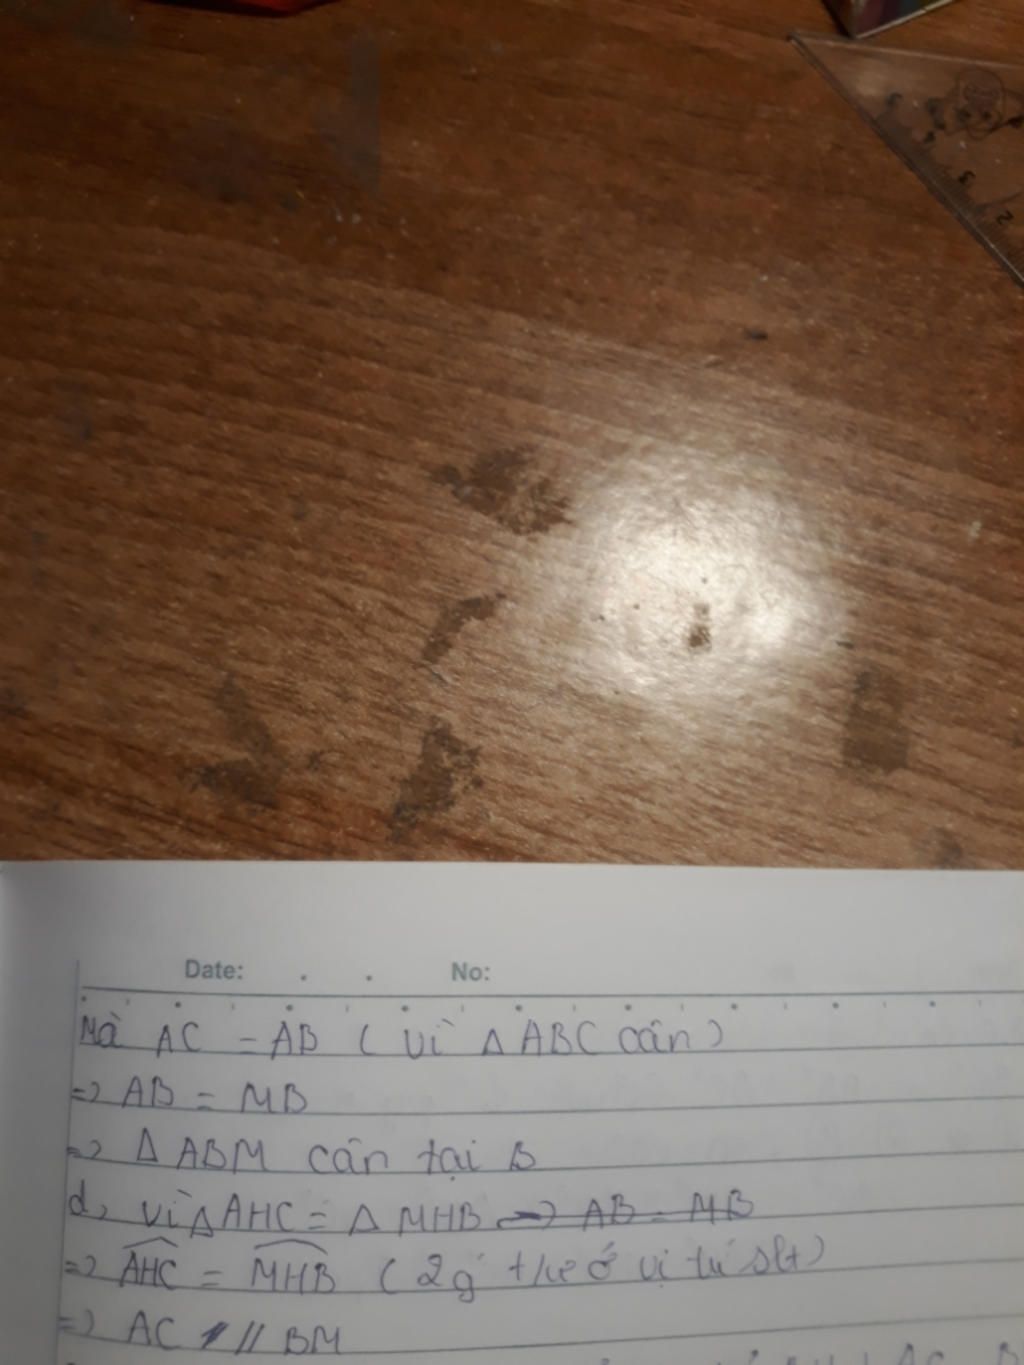 2
3
4
Date: . . No:
Mà AC = AB ( vì Δ ABC cân )
=> AB = MB
=> Δ ABM cân tại B
d, vì Δ AHC = Δ MHB => AB = MB
=> AHC = MHB ( 2 g ở vị trí slt )
=> AC // BM
AC